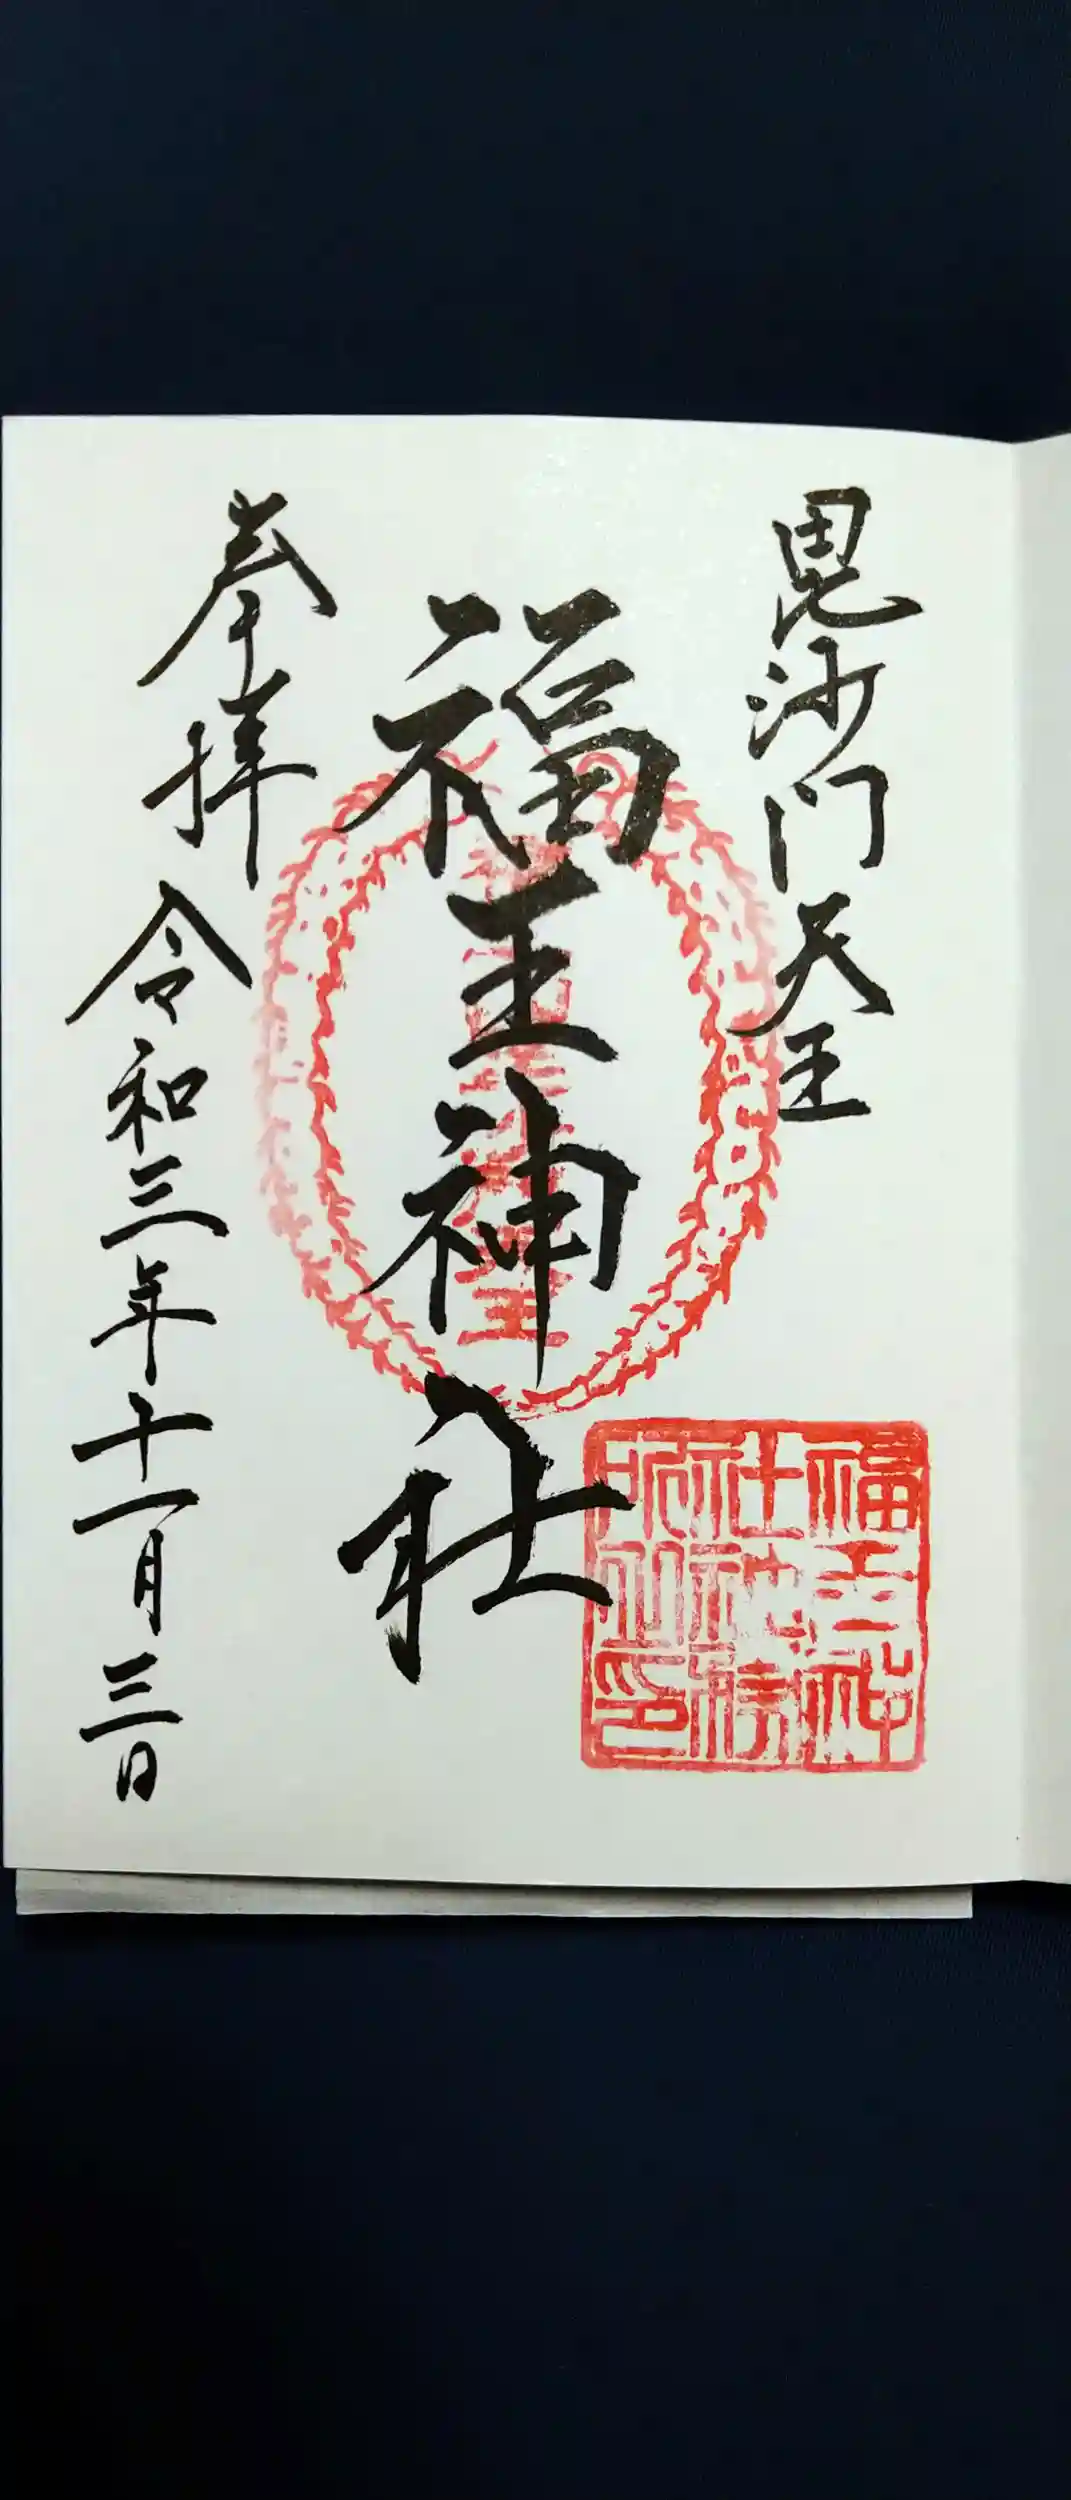 毘沙門天王
福王神社
奉拝 令和三年十一月三日
福王神
社社務
所之印